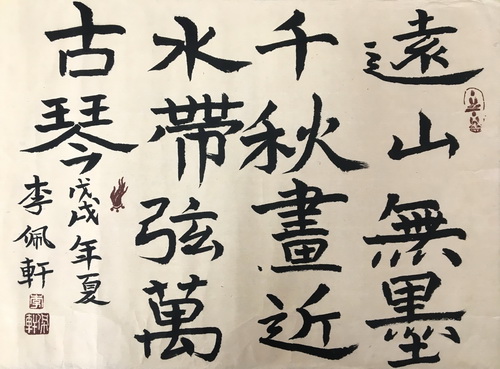 遠山無墨
千秋畫近
水帶弦萬
古琴
戊戌年夏
李佩軒